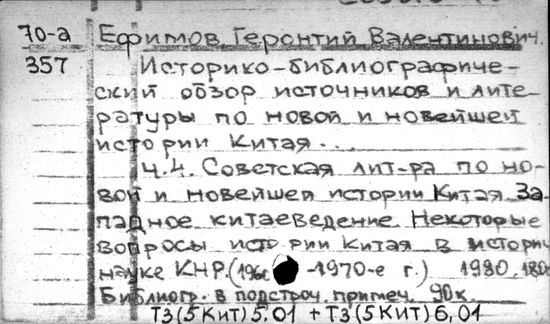 70-а Ефимов, Геронтий Валентинович.
357 Историко-библиографиче-
ский обзор источников и лите-
ратуры по новой и новейшей
истории Китая...
Ч.4. Советская лит-ра по но-
вой и новейшей истории Китая. За-
падное китаеведение. Некоторые
вопросы истории Китая в историч.
науке КНР. -1970-е г.) 1980.
Библиогр. в подстроч. примеч. 90к.
Т3(5Кит)5,01 + Т3(5Кит)6,01